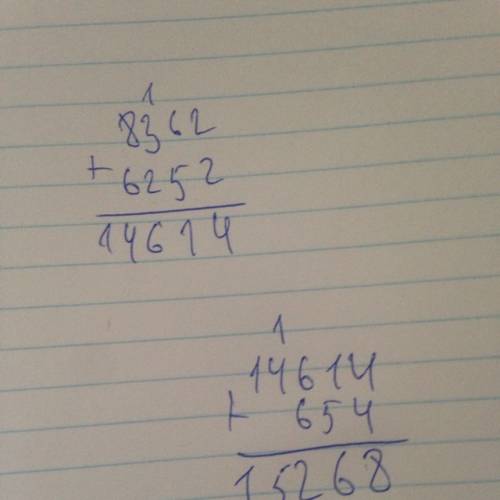 1
8362
+ 6252
14614
1
14614
+ 654
15268